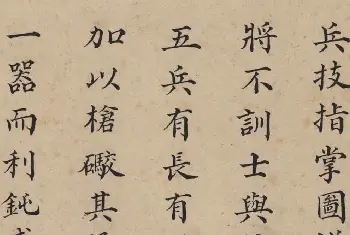 兵技指掌圖
將不訓士與
五兵有長有
加以槍礮其
一器而利鈍